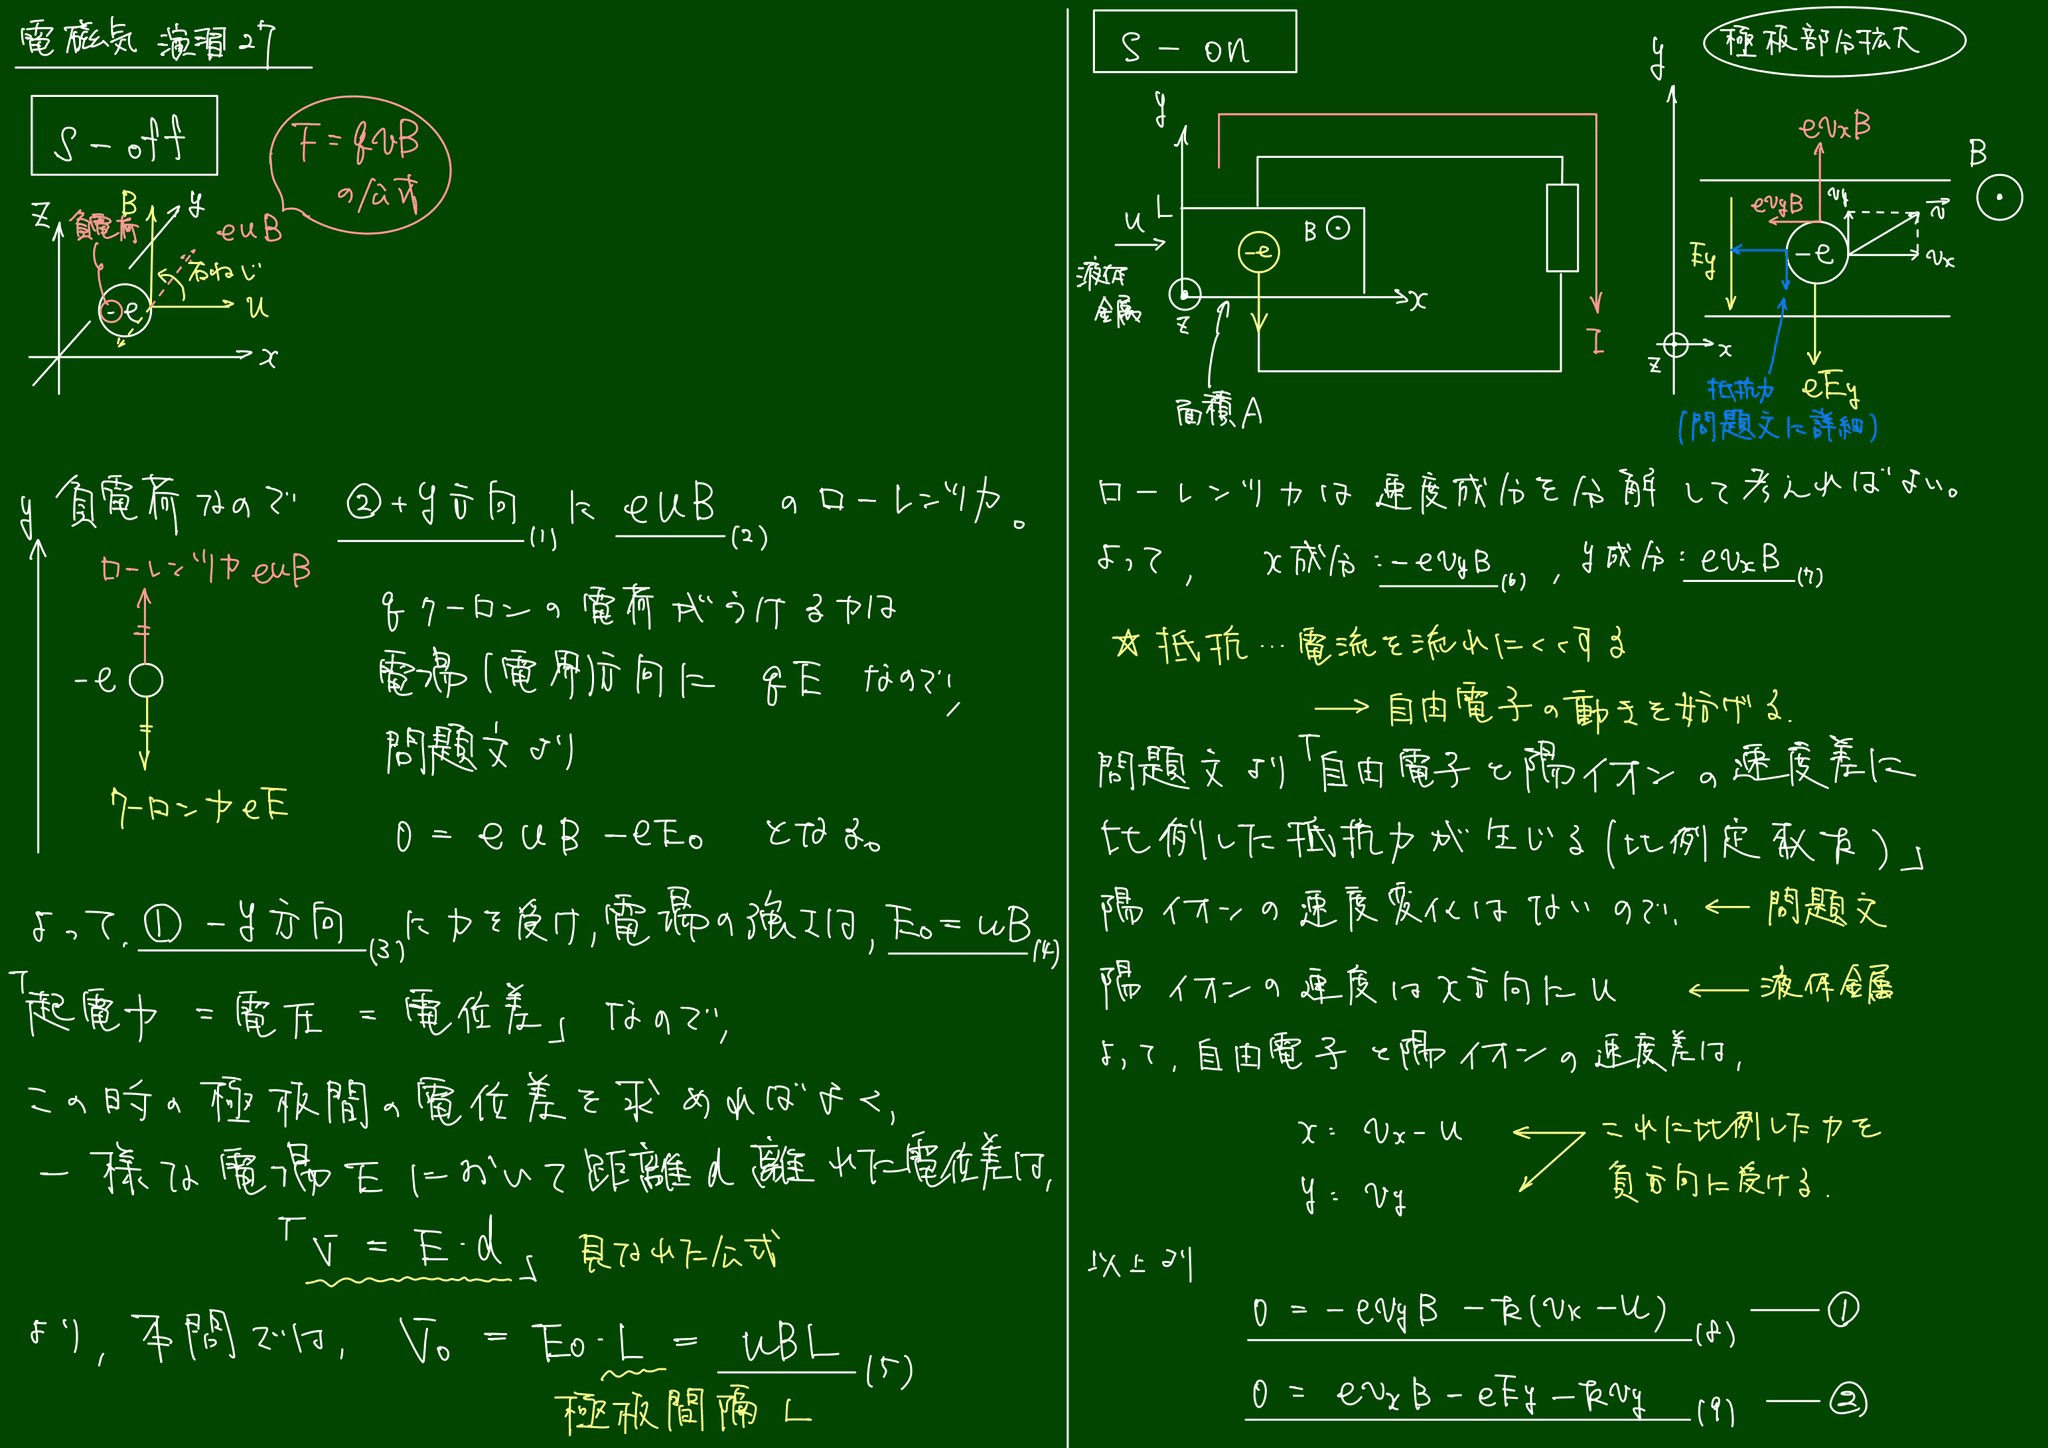 電磁気 演習27
S - off
F = qvB
の公式
z
負電荷
B
y
euB
右ねじ
-e
u
x
y
負電荷なので ②+y方向(1) に euB(2) のローレンツ力。
ローレンツ力 euB
-e
クーロン力 eE
qクーロンの電荷がうける力は
電場(電界)方向に qE なので、
問題文より
0 = euB - eE₀ となる。
よって、① -y方向(3) に力を受け,電場の強さは, E₀ = uB(4)
「起電力 = 電圧 = 電位差」なので,
この時の極板間の電位差を求めればよく,
一様な電場Eにおいて距離d離れた電位差は,
「V = E・d」 見なれた公式
より, 本問では, V₀ = E₀・L = uBL (5)
極板間隔 L
S - on
極板部分拡大
y
L
u
液体
金属
-e
B
z
x
面積A
I
y
evxB
B
evyB
vy
v
Ey
-e
vx
z
x
抵抗力
eEy
(問題文に詳細)
ローレンツ力は速度成分を分解して考えればよい。
よって, x成分:-evyB(6), y成分:evxB(7)
☆ 抵抗…電流を流れにくくする
→ 自由電子の動きを妨げる.
問題文より「自由電子と陽イオンの速度差に
比例した抵抗力が生じる(比例定数k)」
陽イオンの速度変化はないので, ← 問題文
陽イオンの速度はx方向にu ← 液体金属
よって, 自由電子と陽イオンの速度差は,
x: vx-u ← これに比例した力を
y: vy 負方向に受ける.
以上より
0 = -evyB -k(vx-u) (8) ①
0 = evxB - eEy - kvy (9) ②